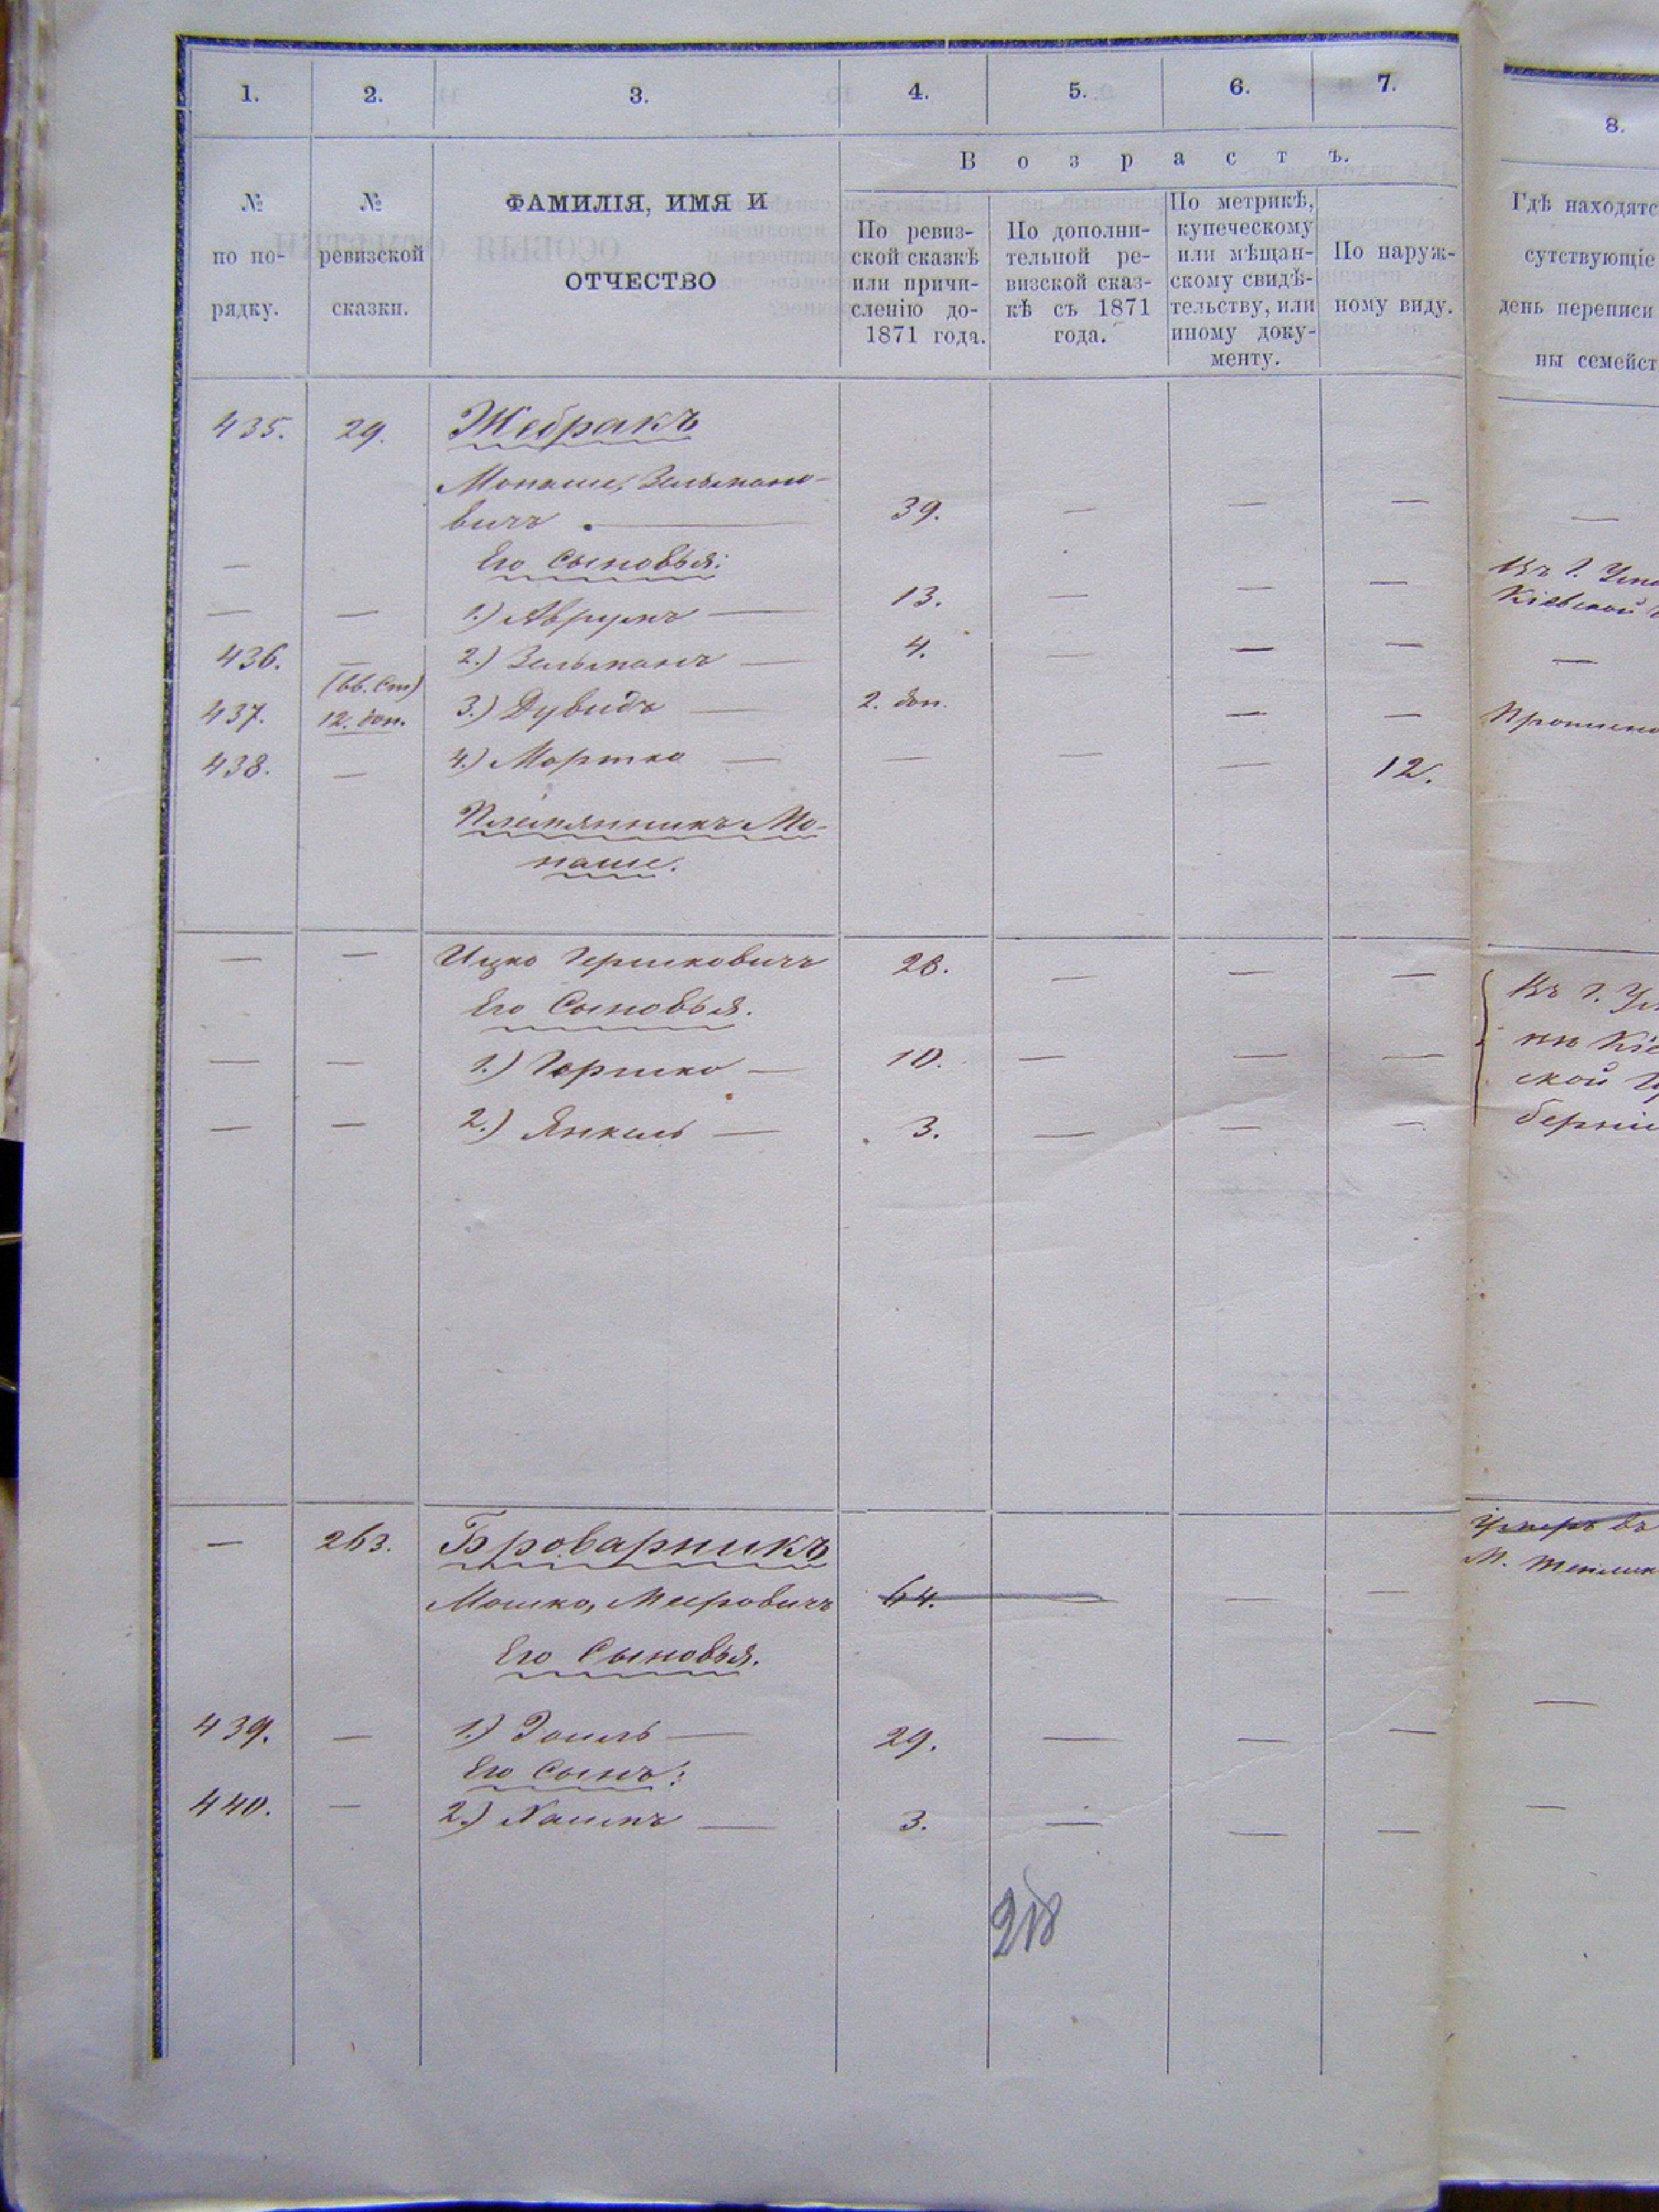 1. 2. 3. 4. 5. 6. 7.
8.
№ по по- рядку.
№ ревизской сказки.
ФАМИЛІЯ, ИМЯ И
ОТЧЕСТВО
Возрастъ.
По ревиз-
ской сказкѣ
или причи-
сленію до-
1871 года.
По дополни-
тельной ре-
визской сказ-
кѣ съ 1871
года.
По метрикѣ,
купеческому
или мѣщан-
скому свидѣ-
тельству, или
иному доку-
менту.
По наруж-
ному виду.
Гдѣ находятс
сутствующіе
день переписи
ны семейст
435. 29. Жебракъ
Монаше, Зельмано-
вичъ 39. — — — —
Его Сыновья:
— — 1.) Аврумъ — 13. — — — Въ г. Ума
Кіевской
436. — 2.) Зельманъ — 4. — — — —
437. (вв. Ст) 12. доп. 3.) Дувидъ — 2. доп. — —
438. — 4.) Мортко — — — — 12.
Племянникъ Мо-
наше.
— — Ицко Гершковичъ 28. — — — Въ г. Ум
Его Сыновья.
нѣ Кіе
— — 1.) Гершко — 10. — — —
ской Гу
— — 2.) Янкель — 3. — — — берніи
— 263. Броварникъ Умеръ въ
м. Теплик
Мошко, Меировичъ 64. — — —
Его Сыновья.
439. — 1.) Зейль — 29. — — — —
Его Сынъ:
440. — 2.) Хаимъ — 3. — — — —
218